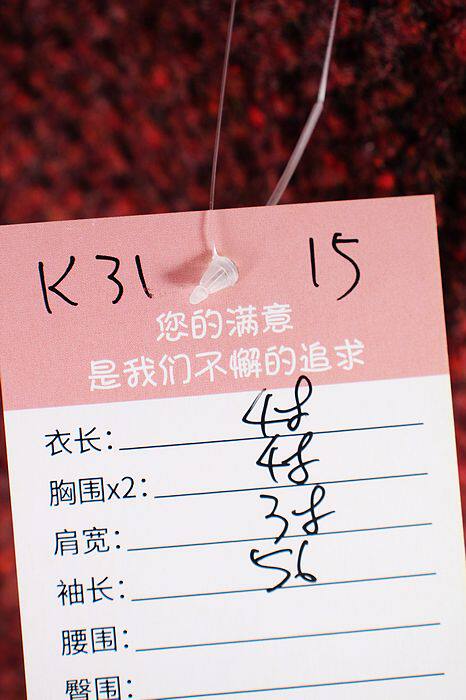 K31 15
您的满意
是我们不懈的追求
衣长: 48
胸围x2: 48
肩宽: 38
袖长: 56
腰围:
臀围: